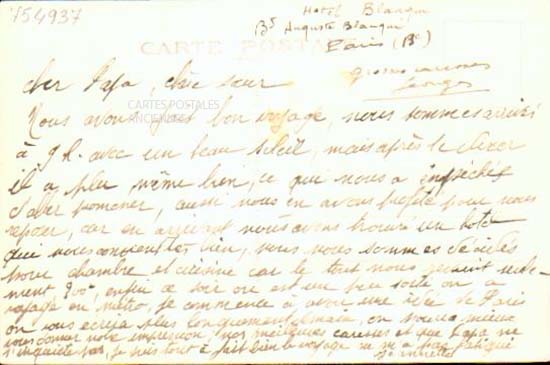 754937
Hotel Blanqui
Bd Auguste Blanqui
Paris (13e)
CARTE POSTALE
Grosses caresses
Georges
cher Papa, chère sœur
CARTES POSTALES
ANCIENNES
Nous avons fait bon voyage, nous sommes arrivés
à 9 h. avec un beau soleil, mais après le dîner
il a plu même bien, ce qui nous a empêché
d'aller promener, aussi nous en avons profité pour nous
reposer, car en arrivant nous avons trouvé un hotel
qui nous convient très bien, nous nous sommes décidés
pour chambre et cuisine car le tout nous revient
ment 900, enfin ce soir on est un peu sorti on a
voyagé en métro, je commence à avoir une idée de Paris
on vous écrira plus longuement demain, on pourra mieux
vous donner notre impression, nos meilleures caresses et que Papa ne
s'inquiète pas, je suis tout à fait bien le voyage ne m'a pas fatigué
Jeannette